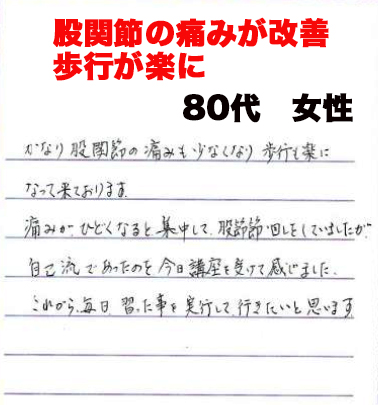 股関節の痛みが改善
歩行が楽に
80代 女性
かなり股関節の痛みも少なくなり歩行も楽に
なって来ております。
痛みがひどくなると集中して、股節節回しをしていましたが、
自己流であったのを今日講座を受けて感じました。
これから、毎日、習った事を実行して行きたいと思います